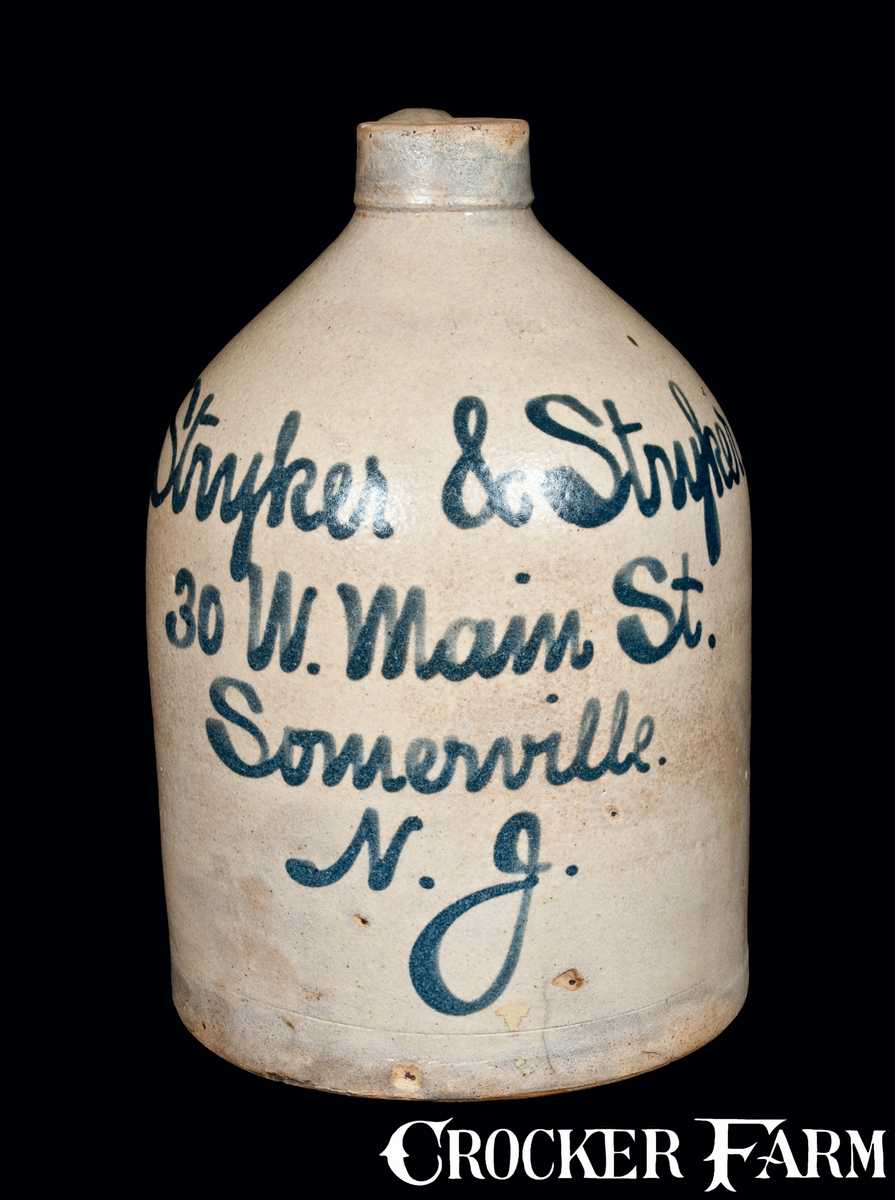 Stryker & Stryker
30 W. Main St.
Somerville.
N. J.
CROCKER FARM